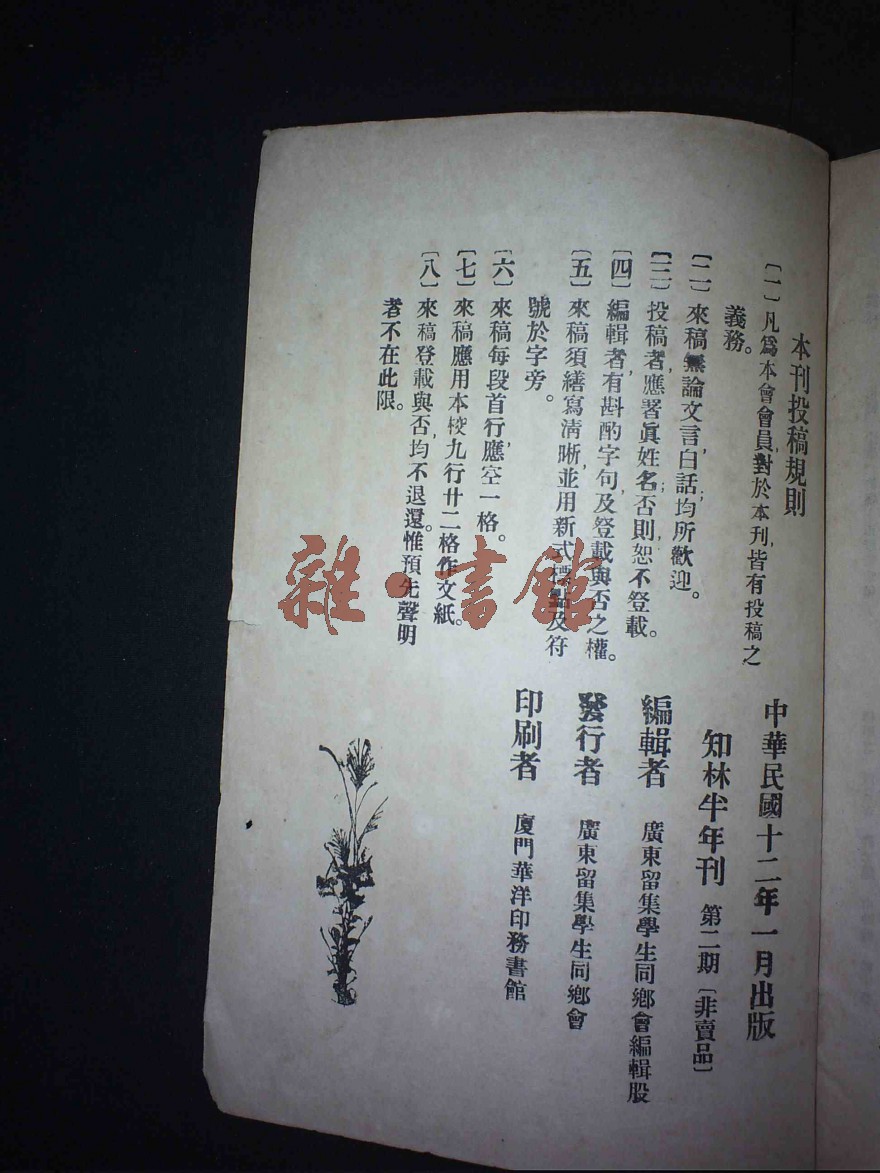 本刊投稿規則
〔一〕凡爲本會會員，對於本刊，皆有投稿之
義務。
〔二〕來稿無論文言，白話；均所歡迎。
〔三〕投稿者，應署眞姓名；否則恕不登載。
〔四〕編輯者，有斟酌字句，及登載與否之權。
〔五〕來稿須繕寫淸晰，並用新式標點及符
號於字旁。
〔六〕來稿每段首行，應空一格。
〔七〕來稿應用本校九行廿二格作文紙。
〔八〕來稿登載與否，均不退還。惟預先聲明
者不在此限。
中華民國十二年一月出版
知林半年刊 第二期〔非賣品〕
編輯者 廣東留集學生同鄉會編輯股
發行者 廣東留集學生同鄉會
印刷者 廈門華洋印務書館
雜·書館